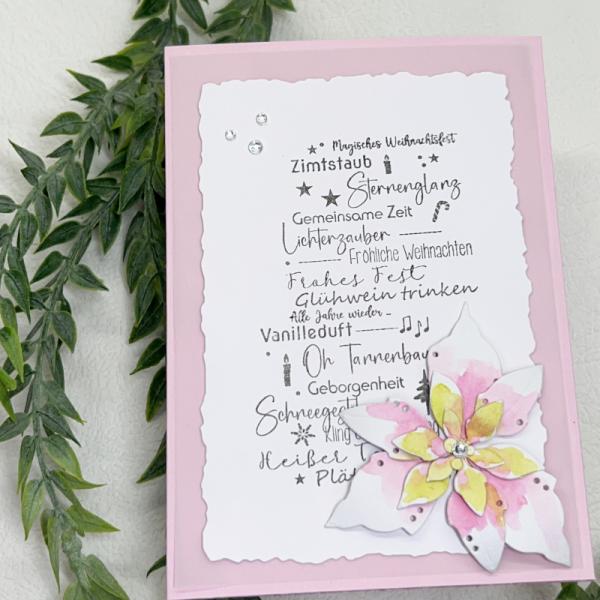 Magisches Weihnachtsfest
Zimtstaub
Sternenglanz
Gemeinsame Zeit
Lichterzauber
Fröhliche Weihnachten
Frohes Fest
Glühwein trinken
Alle Jahre wieder -
Vanilleduft
Oh
Geborgenheit
Kling
Heißer